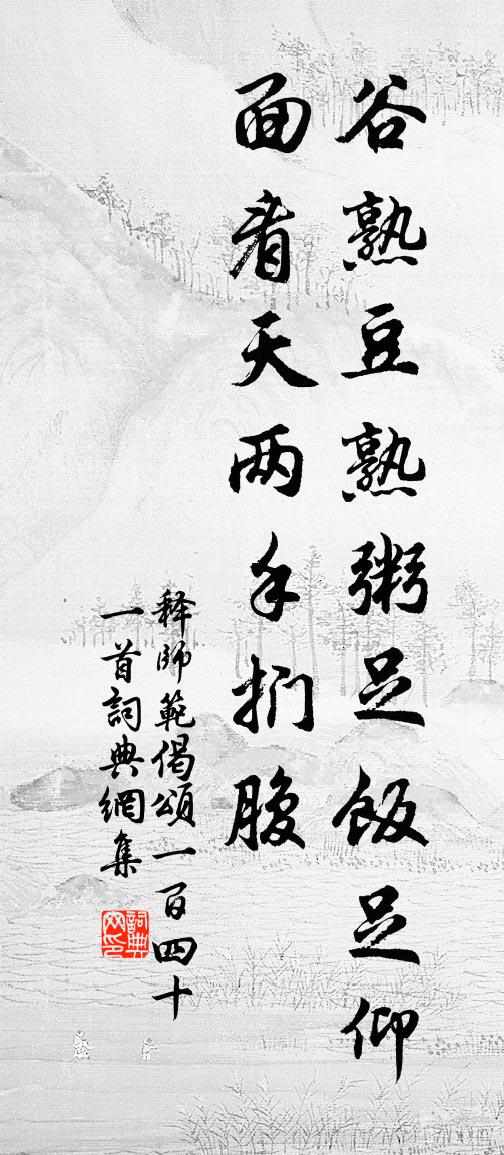 谷熟豆熟粥足饭足仰
面看天两手扪腹
释師範偈頌一百四十
一首詞典網集
詞典
网印